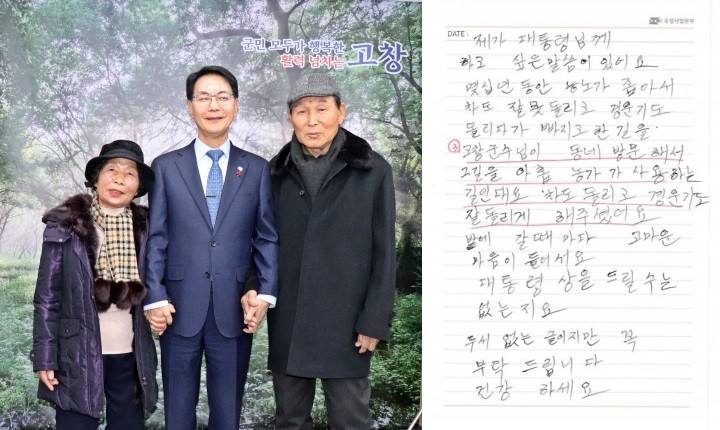 군민 모두가 행복한
활력 넘치는 고창
우정사업본부
DATE :
제가 대통령님께
하고 싶은말씀이 있어요
몇십년 동안 농노가 좁아서
차도 잘못 돌리고 경운기도
돌리다가 빠지고 한 길을
고창군수님이 동네 방문 해서
그길을 아홉 농가가 사용하는
길인대요 차도 돌리고 경운기도
잘돌리게 해주셨어요
밭에 갈때 마다 고마운
마음이 들어서요
대통령 상을 드릴 수는
없는 지요
두서 없는 글이지만 꼭
부탁 드립니다
건강 하세요